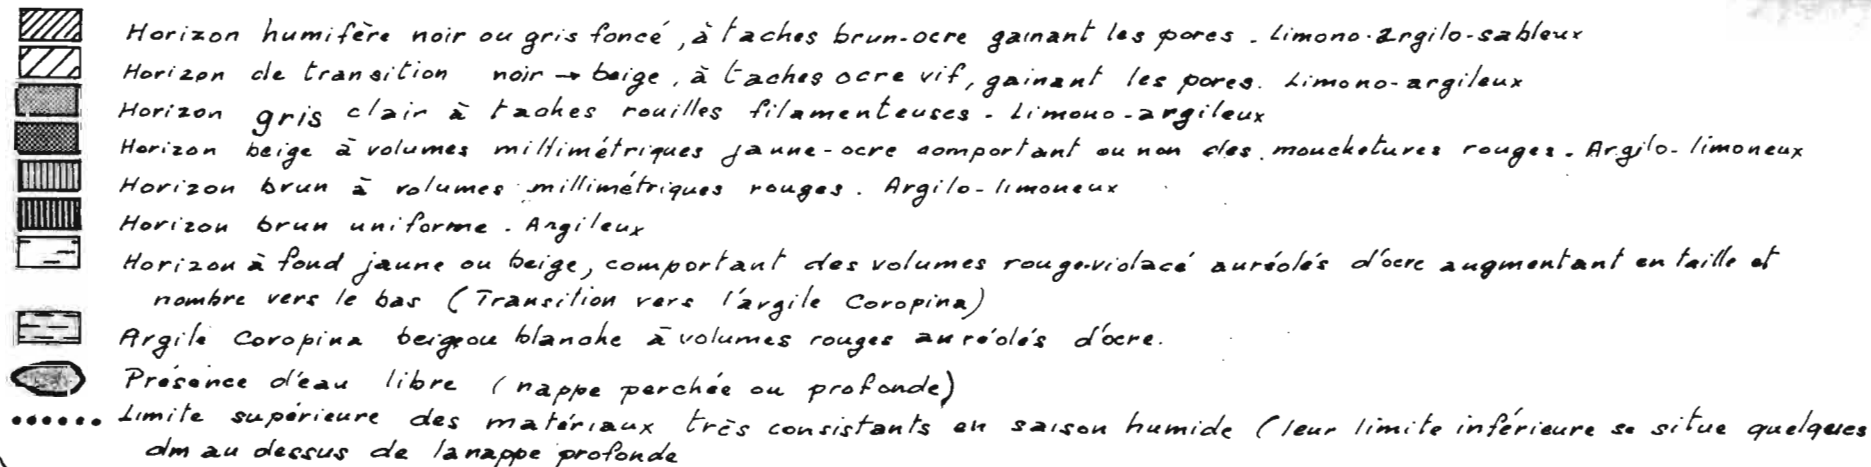 Horizon humifère noir ou gris foncé, à taches brun-ocre gainant les pores - Limono-argilo-sableux
Horizon de transition noir → beige, à taches ocre vif, gainant les pores. Limono-argileux
Horizon gris clair à taches rouilles filamenteuses - Limono-argileux
Horizon beige à volumes millimétriques jaune-ocre comportant ou non des mouchetures rouges. Argilo-limoneux
Horizon brun à volumes millimétriques rouges. Argilo-limoneux
Horizon brun uniforme - Argileux
Horizon à fond jaune ou beige, comportant des volumes rouge-violacé auréolés d'ocre augmentant en taille et
nombre vers le bas (Transition vers l'argile Coropina)
Argile Coropina beige ou blanche à volumes rouges auréolés d'ocre.
Présence d'eau libre (nappe perchée ou profonde)
Limite supérieure des matériaux très consistants en saison humide (leur limite inférieure se situe quelques
dm au dessus de la nappe profonde